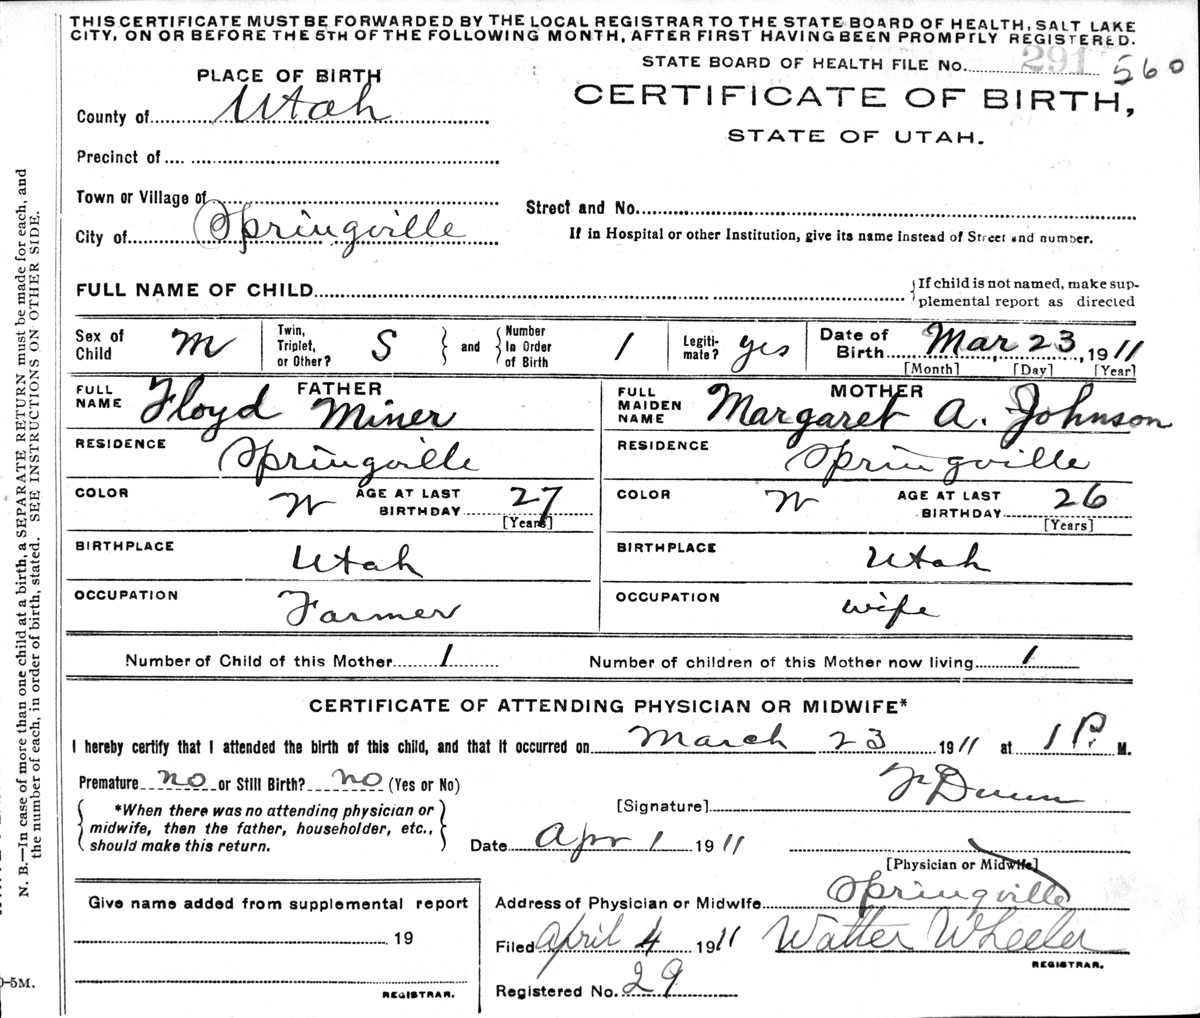 THIS CERTIFICATE MUST BE FORWARDED BY THE LOCAL REGISTRAR TO THE STATE BOARD OF HEALTH, SALT LAKE
CITY, ON OR BEFORE THE 5TH OF THE FOLLOWING MONTH, AFTER FIRST HAVING BEEN PROMPTLY REGISTERED.
STATE BOARD OF HEALTH FILE No. 291 560
PLACE OF BIRTH
CERTIFICATE OF BIRTH,
STATE OF UTAH.
County of Utah
Precinct of
Town or Village of
City of Springville
Street and No.
If in Hospital or other Institution, give its name instead of Street and number.
FULL NAME OF CHILD
If child is not named, make sup-
plemental report as directed
Sex of Child M
Twin, Triplet, or Other? S and Number In Order of Birth 1
Legiti-mate? yes
Date of Birth Mar 23, 1911
[Month] [Day] [Year]
FATHER
FULL NAME Floyd Miner
RESIDENCE Springville
COLOR W AGE AT LAST BIRTHDAY 27
[Years]
BIRTHPLACE Utah
OCCUPATION Farmer
MOTHER
FULL MAIDEN NAME Margaret A. Johnson
RESIDENCE Springville
COLOR W AGE AT LAST BIRTHDAY 26
[Years]
BIRTHPLACE Utah
OCCUPATION wife
Number of Child of this Mother 1 Number of children of this Mother now living 1
CERTIFICATE OF ATTENDING PHYSICIAN OR MIDWIFE*
I hereby certify that I attended the birth of this child, and that it occurred on March 23 1911 at 1 P. M.
Premature no or Still Birth? no (Yes or No)
*When there was no attending physician or
midwife, then the father, householder, etc.,
should make this return.
[Signature] Dunn
Date Apr 1 1911
[Physician or Midwife]
Address of Physician or Midwife Springville
Filed April 4 1911 Walter Wheeler
REGISTRAR.
Registered No. 29
Give name added from supplemental report
19
REGISTRAR.
N. B.—In case of more than one child at a birth, a SEPARATE RETURN must be made for each, and
the number of each, in order of birth, stated. SEE INSTRUCTIONS ON OTHER SIDE.
0-5M.